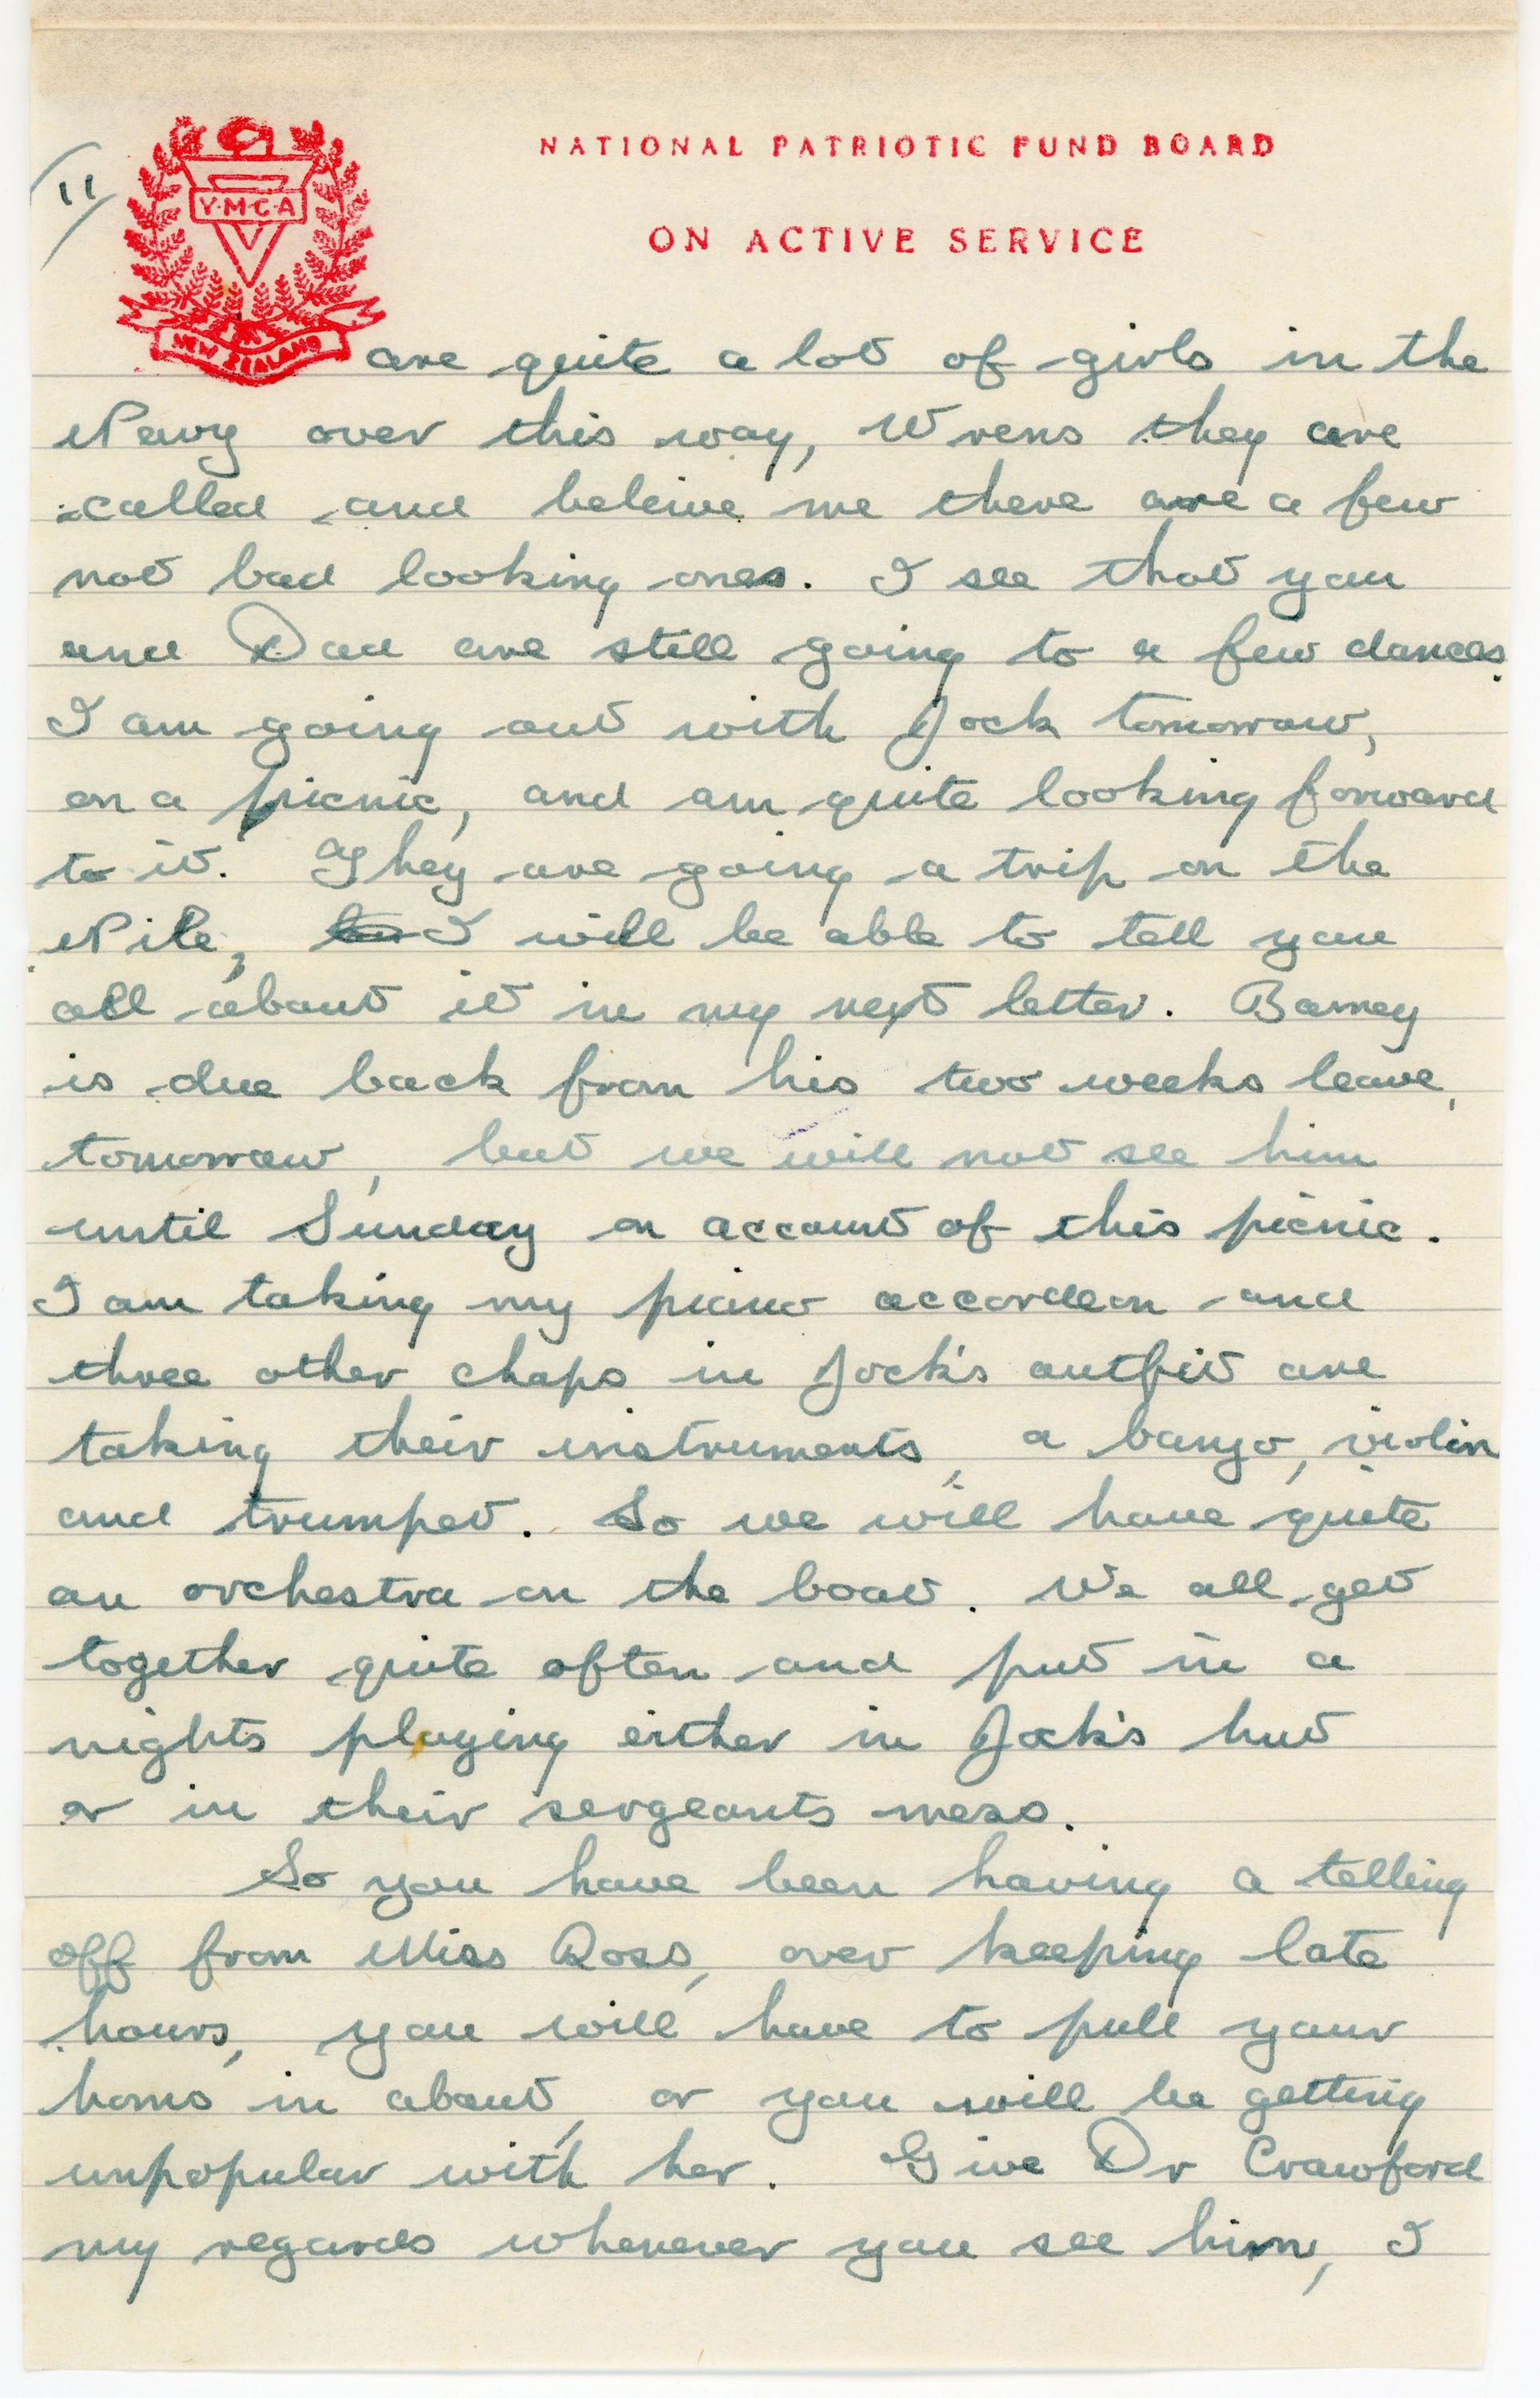 NATIONAL PATRIOTIC FUND BOARD
ON ACTIVE SERVICE
11
Y·M·C·A
NEW ZEALAND
are quite a lot of girls in the
Navy over this way, Wrens they are
called and beleive me there are a few
not bad looking ones. I see that you
and Dad are still going to a few dances.
I am going out with Jock tomorrow,
on a picnic, and am quite looking forward
to it. They are going a trip on the
Nile, I will be able to tell you
all about it in my next letter. Barney
is due back from his two weeks leave,
tomorrow, but we will not see him
until Sunday on account of this picnic.
I am taking my piano accordeon and
three other chaps in Jock's outfit are
taking their instruments, a banjo, violin
and trumpet. So we will have quite
an orchestra on the boat. We all get
together quite often and put in a
nights playing either in Jock's hut
or in their sergeants mess.
So you have been having a telling
off from Miss Ross, over keeping late
hours, you will have to pull your
horns in about, or you will be getting
unpopular with her. Give Dr Crawford
my regards whenever you see him, I